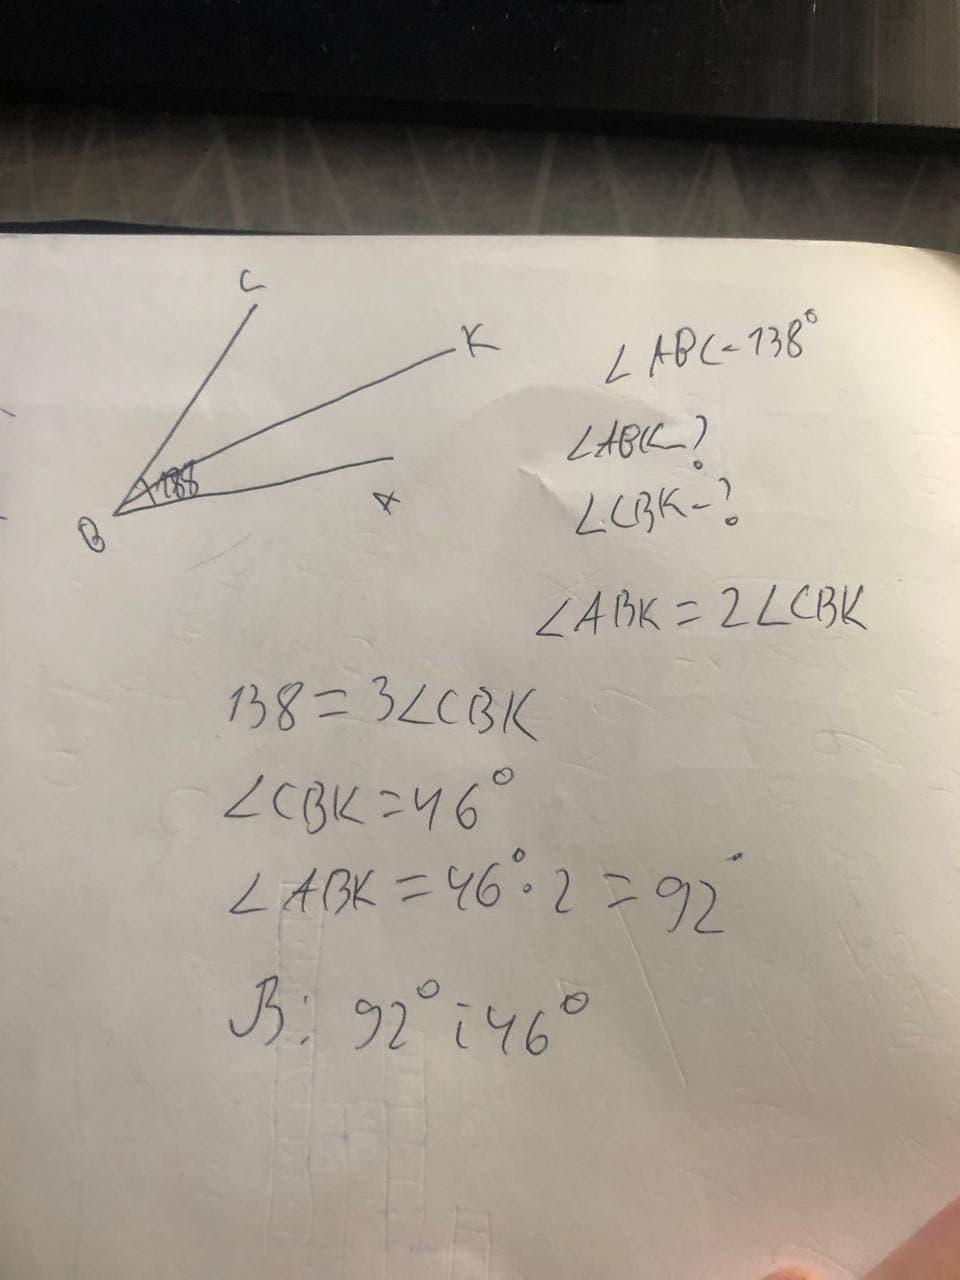 C
K
138
A
B
∠ABC-138°
∠ABK-?
∠CBK-?
∠ABK=2∠CBK
138=3∠CBK
∠CBK=46°
∠ABK=46°·2=92°
В: 92° і 46°